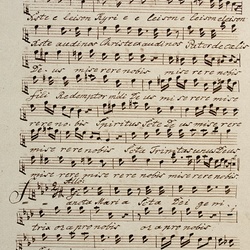 Xste e leison Kyri e e leison e leison eleison
Xste audinos Christe exaudinos Pater de cælis
De us mi se rere nobis mise rere nobis
fili Redemptor mundi Deus mi se re re mise
re re no bis Spiritus Scte De us mi se re re
mise rere nobis Scta Trinitas unus Deus
mi se re re nobis mise rere nobis
Sancta Maria Scta Dei ge ni
trix ora pro nobis ora pro nobis